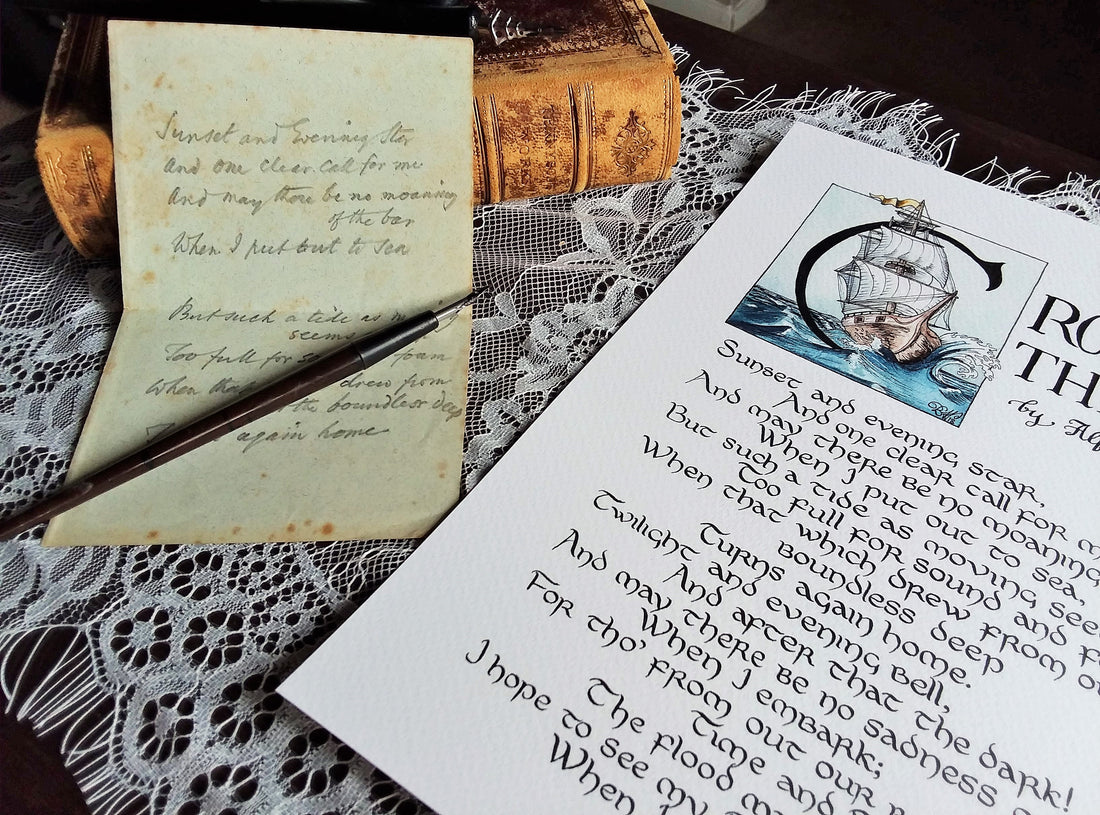 Sunset and Evening Star
And one clear call for me
And may there be no moaning
of the bar
When I put out to sea
But such a tide as
seems
Too full for foam
When that drew from
the boundless deep
again home
C
RO
TH
by Alf
Sunset and evening star,
And one clear call for m
And may there be no moaning
When I put out to sea,
But such a tide as moving see
Too full for sound and f
When that which drew from o
boundless deep
Turns again home.
Twilight and evening bell,
And after that the dark!
And may there be no sadness
When I embark;
For tho' from out our
Time and
The flood m
I hope to see my
When I